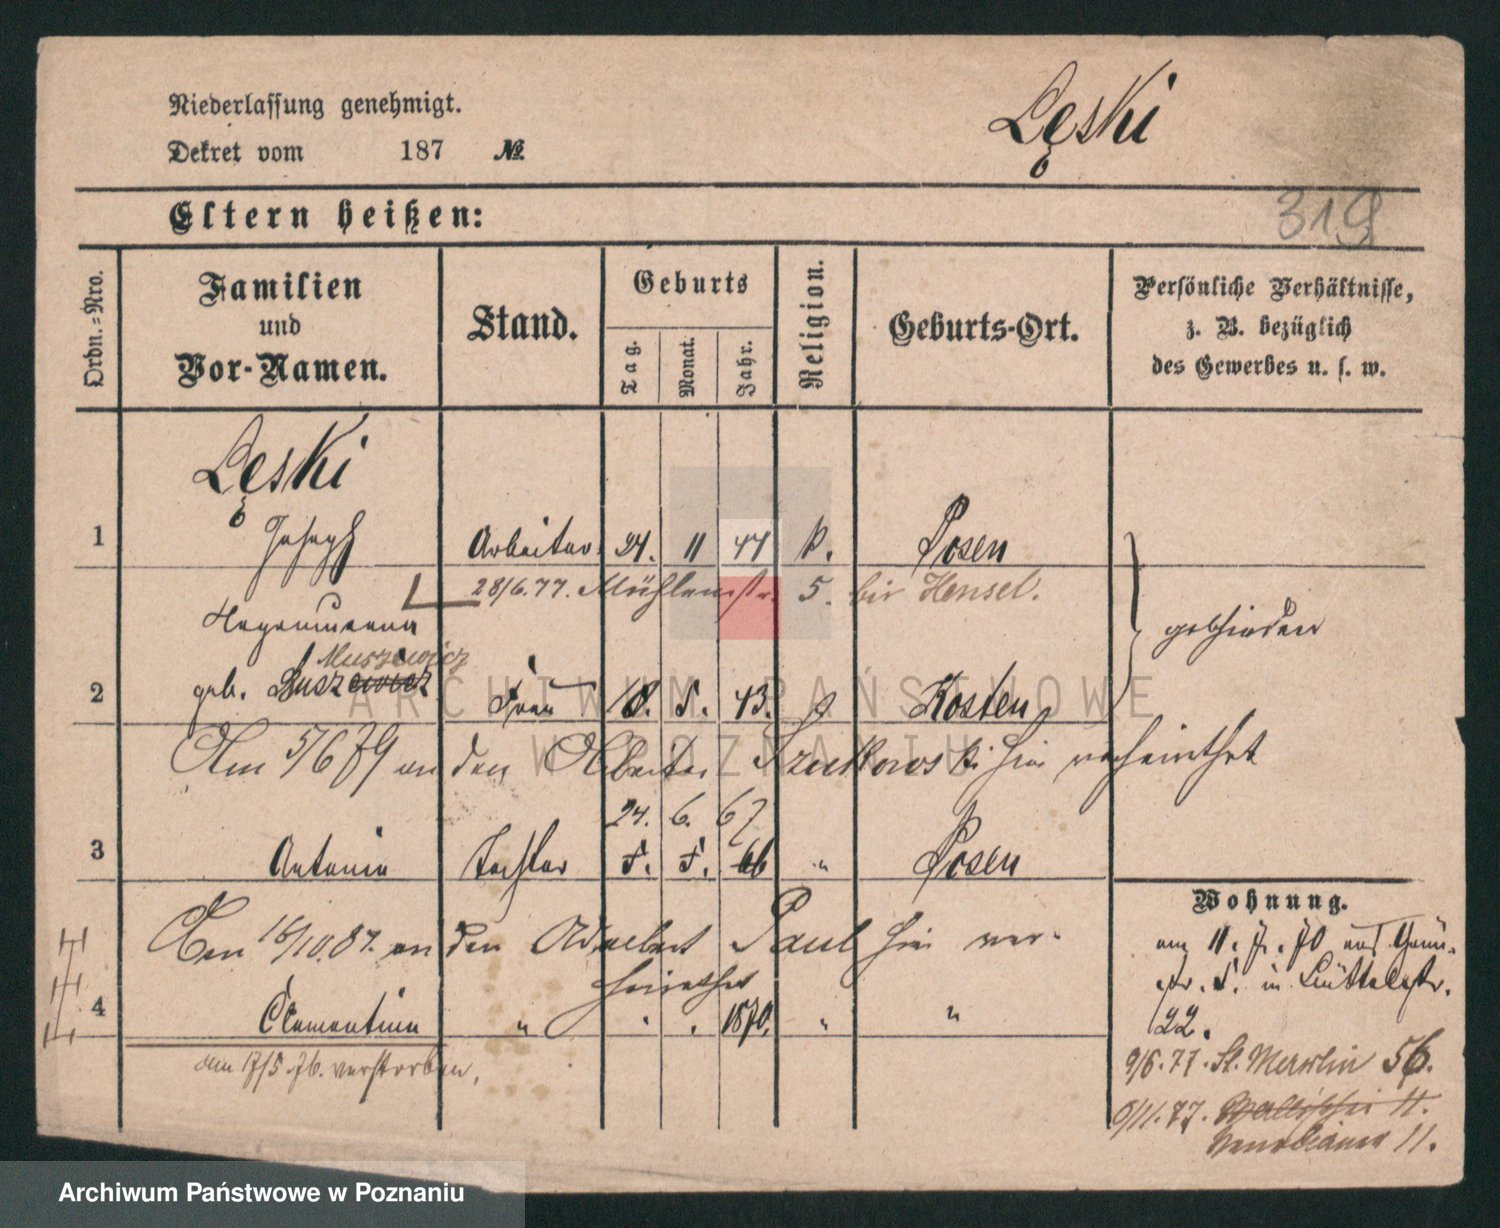 Niederlassung genehmigt.
Dekret vom 187 №
Łęski
319
Eltern heißen:
Ordn.=Nro.
Familien
und
Vor-Namen.
Stand.
Geburts
Tag.
Monat.
Jahr.
Religion.
Geburts-Ort.
Persönliche Verhältnisse,
z. B. bezüglich
des Gewerbes u. s. w.
Łęski
1 Joseph Arbeiter 24. 11 47 k. Posen
28/6.77. Mühlenstr. 5. bei Hensel.
geschieden
Muszewicz
2 geb. Frau 18. 5. 43. Kosten
Am 5/6 79 an den Arbeiter Szułkowski hier verheirathet
24. 6. 67
3 Antonia Tochter 5. 5. 66 " Posen
Wohnung.
Am 16/10.87. an den Adalbert Paul hier ver-
heirathet
am 11. 7. 70 aus Grün-
str. 5. in Büttelstr.
22.
4 Clementine " . . 1870. " "
am 17/5.76. verstorben.
9/6.77. St. Martin 56.
6/11.77. Wallischei 11.
Venetianer 11.
ARCHIWUM PAŃSTWOWE
W POZNANIU
Archiwum Państwowe w Poznaniu